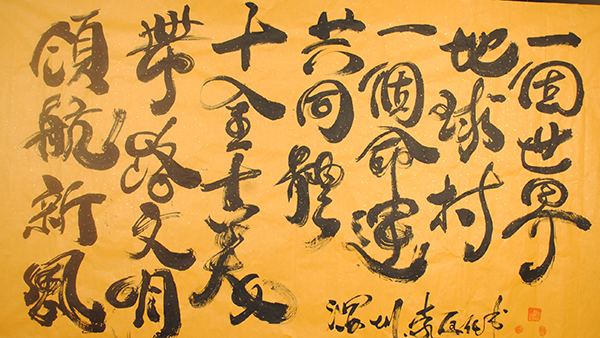 一個世界
地球村
一個命運
共同體
十全十美
帶路文明
領航新風
深圳李